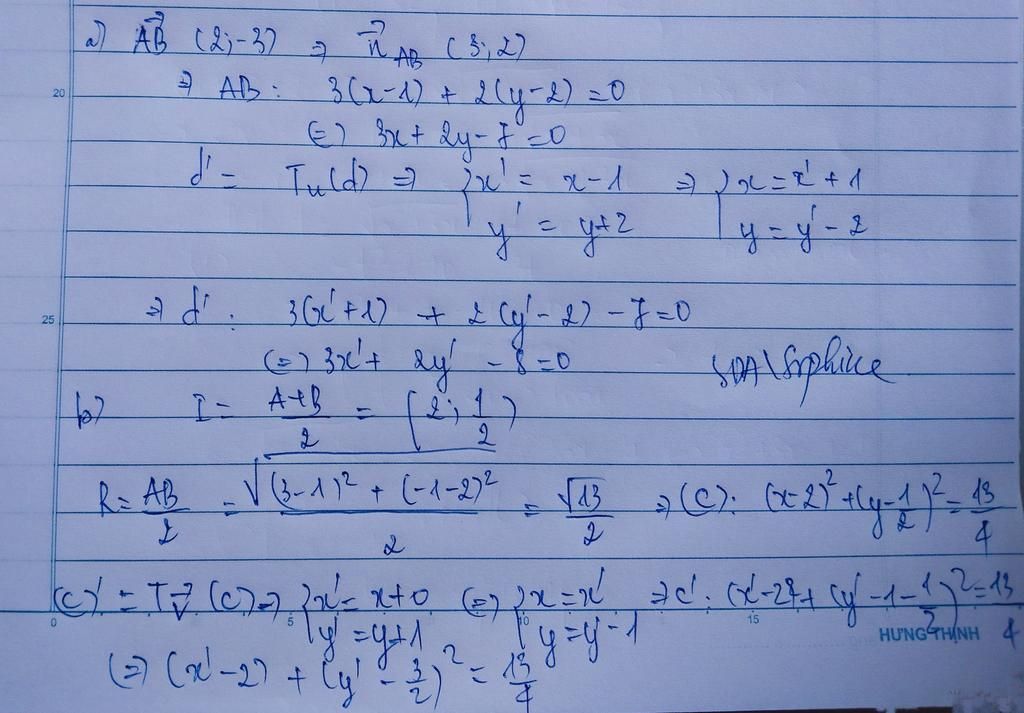 a) $\overrightarrow{AB}$ (2; -3) ⇒ $\overrightarrow{n}_{AB}$ (3; 2)
20
⇒ AB: 3(x-1) + 2(y-2) = 0
(=) 3x + 2y - 7 = 0
d' = T_u(d) ⇒ { x' = x - 1 ⇒ { x = x' + 1
y' = y + 2 y = y' - 2
25
⇒ d': 3(x' + 1) + 2(y' - 2) - 7 = 0
(=) 3x' + 2y' - 8 = 0
b) I = (A+B)/2 = (2; 1/2)
R = AB/2 = √((3-1)² + (-1-2)²)/2 = √13/2 ⇒ (C): (x-2)² + (y - 1/2)² = 13/4
(C)' = T_$\overrightarrow{v}$ (C) ⇒ { x' = x + 0 (=) { x = x' ⇒ C': (x'-2)² + (y' - 1 - 1/2)² = 13/4
y' = y + 1 y = y' - 1
0 5 10 15
HƯNG THỊNH
(=) (x' - 2) + (y' - 3/2)² = 13/4